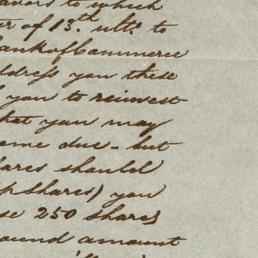 favors to which
er of 13th ulto. to
Bank of Commerce
address you these
you to reinvest
that you may
come due - but
hares should
shares) you
se 250 shares
ound amount